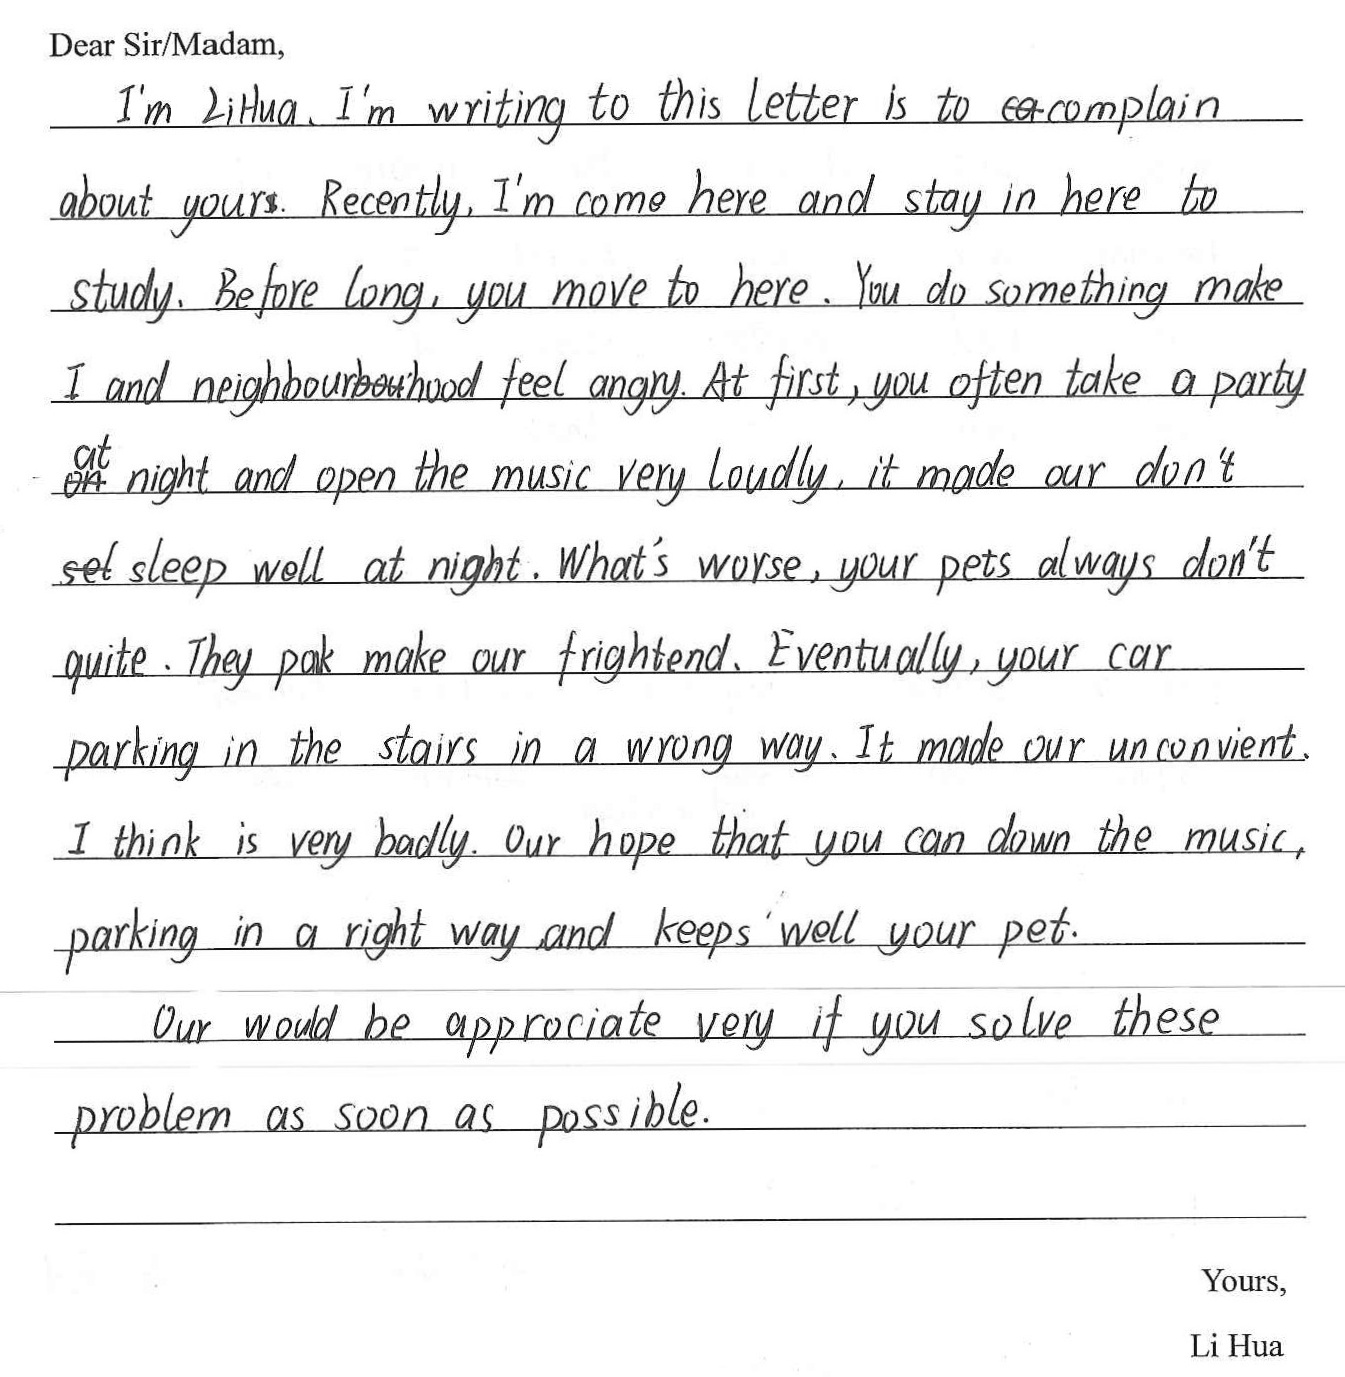 Dear Sir/Madam,
I'm LiHua. I'm writing to this letter is to complain
about yours. Recently, I'm come here and stay in here to
study. Before long, you move to here. You do something make
I and neighbourhood feel angry. At first, you often take a party
at night and open the music very loudly, it made our don't
sleep well at night. What's worse, your pets always don't
quite. They make our frightend. Eventually, your car
parking in the stairs in a wrong way. It made our unconvient.
I think is very badly. Our hope that you can down the music,
parking in a right way and keeps well your pet.
Our would be approciate very if you solve these
problem as soon as possible.
Yours,
Li Hua